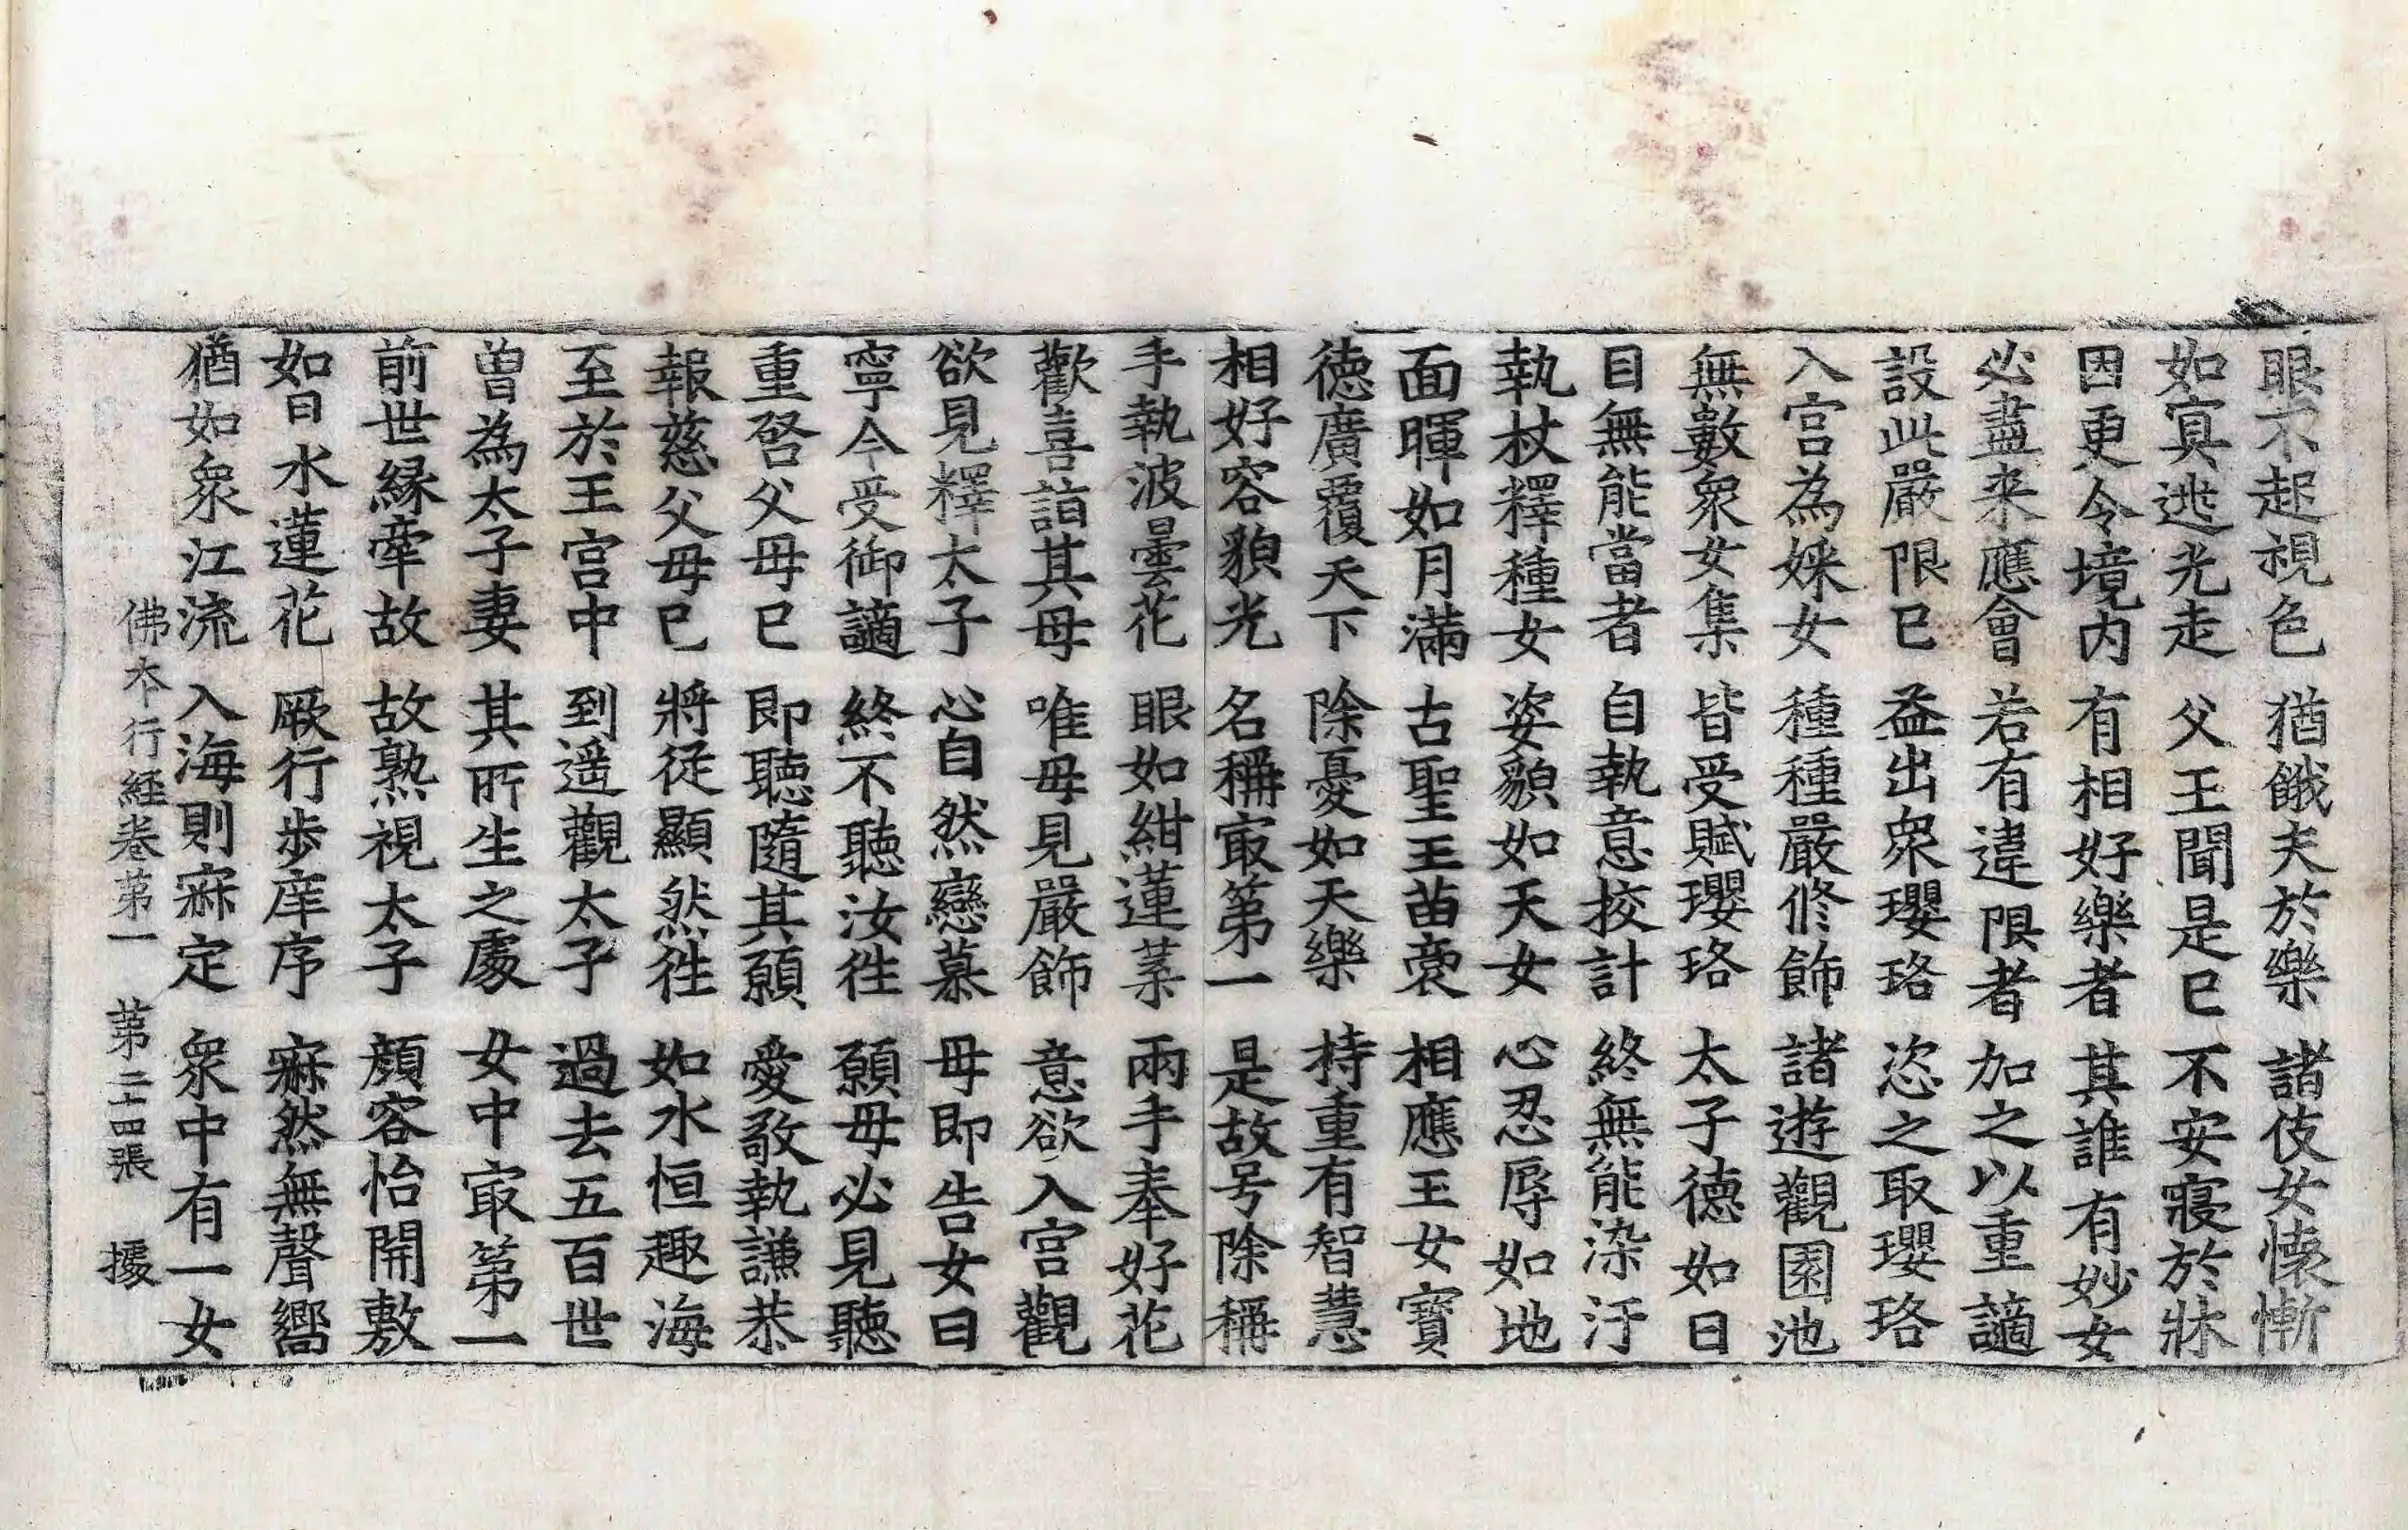 眼不起視色　猶餓夫於樂　諸伎女懷慚
如寘逃光走　父王聞是已　不安寢於牀
因更令境内　有相好樂者　其誰有妙女
必盡来應會　若有違限者　加之以重謫
設此嚴限已　益出衆瓔珞　恣之取瓔珞
入宫為婇女　種種嚴修飾　諸遊觀園池
無數衆女集　皆受賦瓔珞　太子德如日
目無能當者　自執意挍計　終無能染汙
執杖釋種女　姿貌如天女　心忍辱如地
面暉如月滿　古聖王苗裔　相應王女寶
德廣覆天下　除憂如天樂　持重有智慧
相好容貌光　名稱㝡第一　是故号除稱
手執波曇花　眼如紺蓮葉　兩手奉好花
歡喜詣其母　唯母見嚴飾　意欲入宫觀
欲見釋太子　心自然戀慕　母即告女曰
寧今受御謫　終不聽汝徃　願母必見聽
重啓父母已　即聽隨其願　愛敬執謙恭
報慈父母已　將從顯然徃　如水恒趣海
至於王宫中　到遥觀太子　過去五百世
曽為太子妻　其所生之處　女中㝡第一
前世縁牽故　故熟視太子　顔容怡開敷
如日水蓮花　厥行步庠序　寂然無聲嚮
猶如衆江流　入海則寂定　衆中有一女
佛本行經卷第一　第二十四張　據